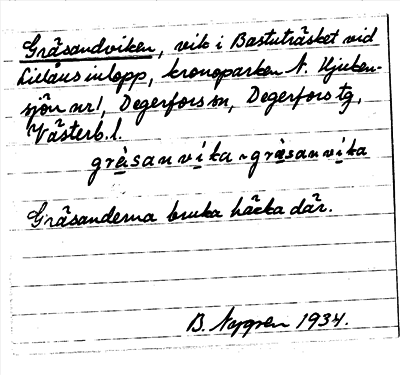 Gräsandviken, vik i Bastuträsket vid
Lillåns inlopp, kronoparken N. Hjuken-
sjön nr 1, Degerfors sn, Degerfors tg,
Västerb. l.
gräsanvika ~ gräsanvika
Gräsanderna bruka häcka där.
B. Nygren 1934.